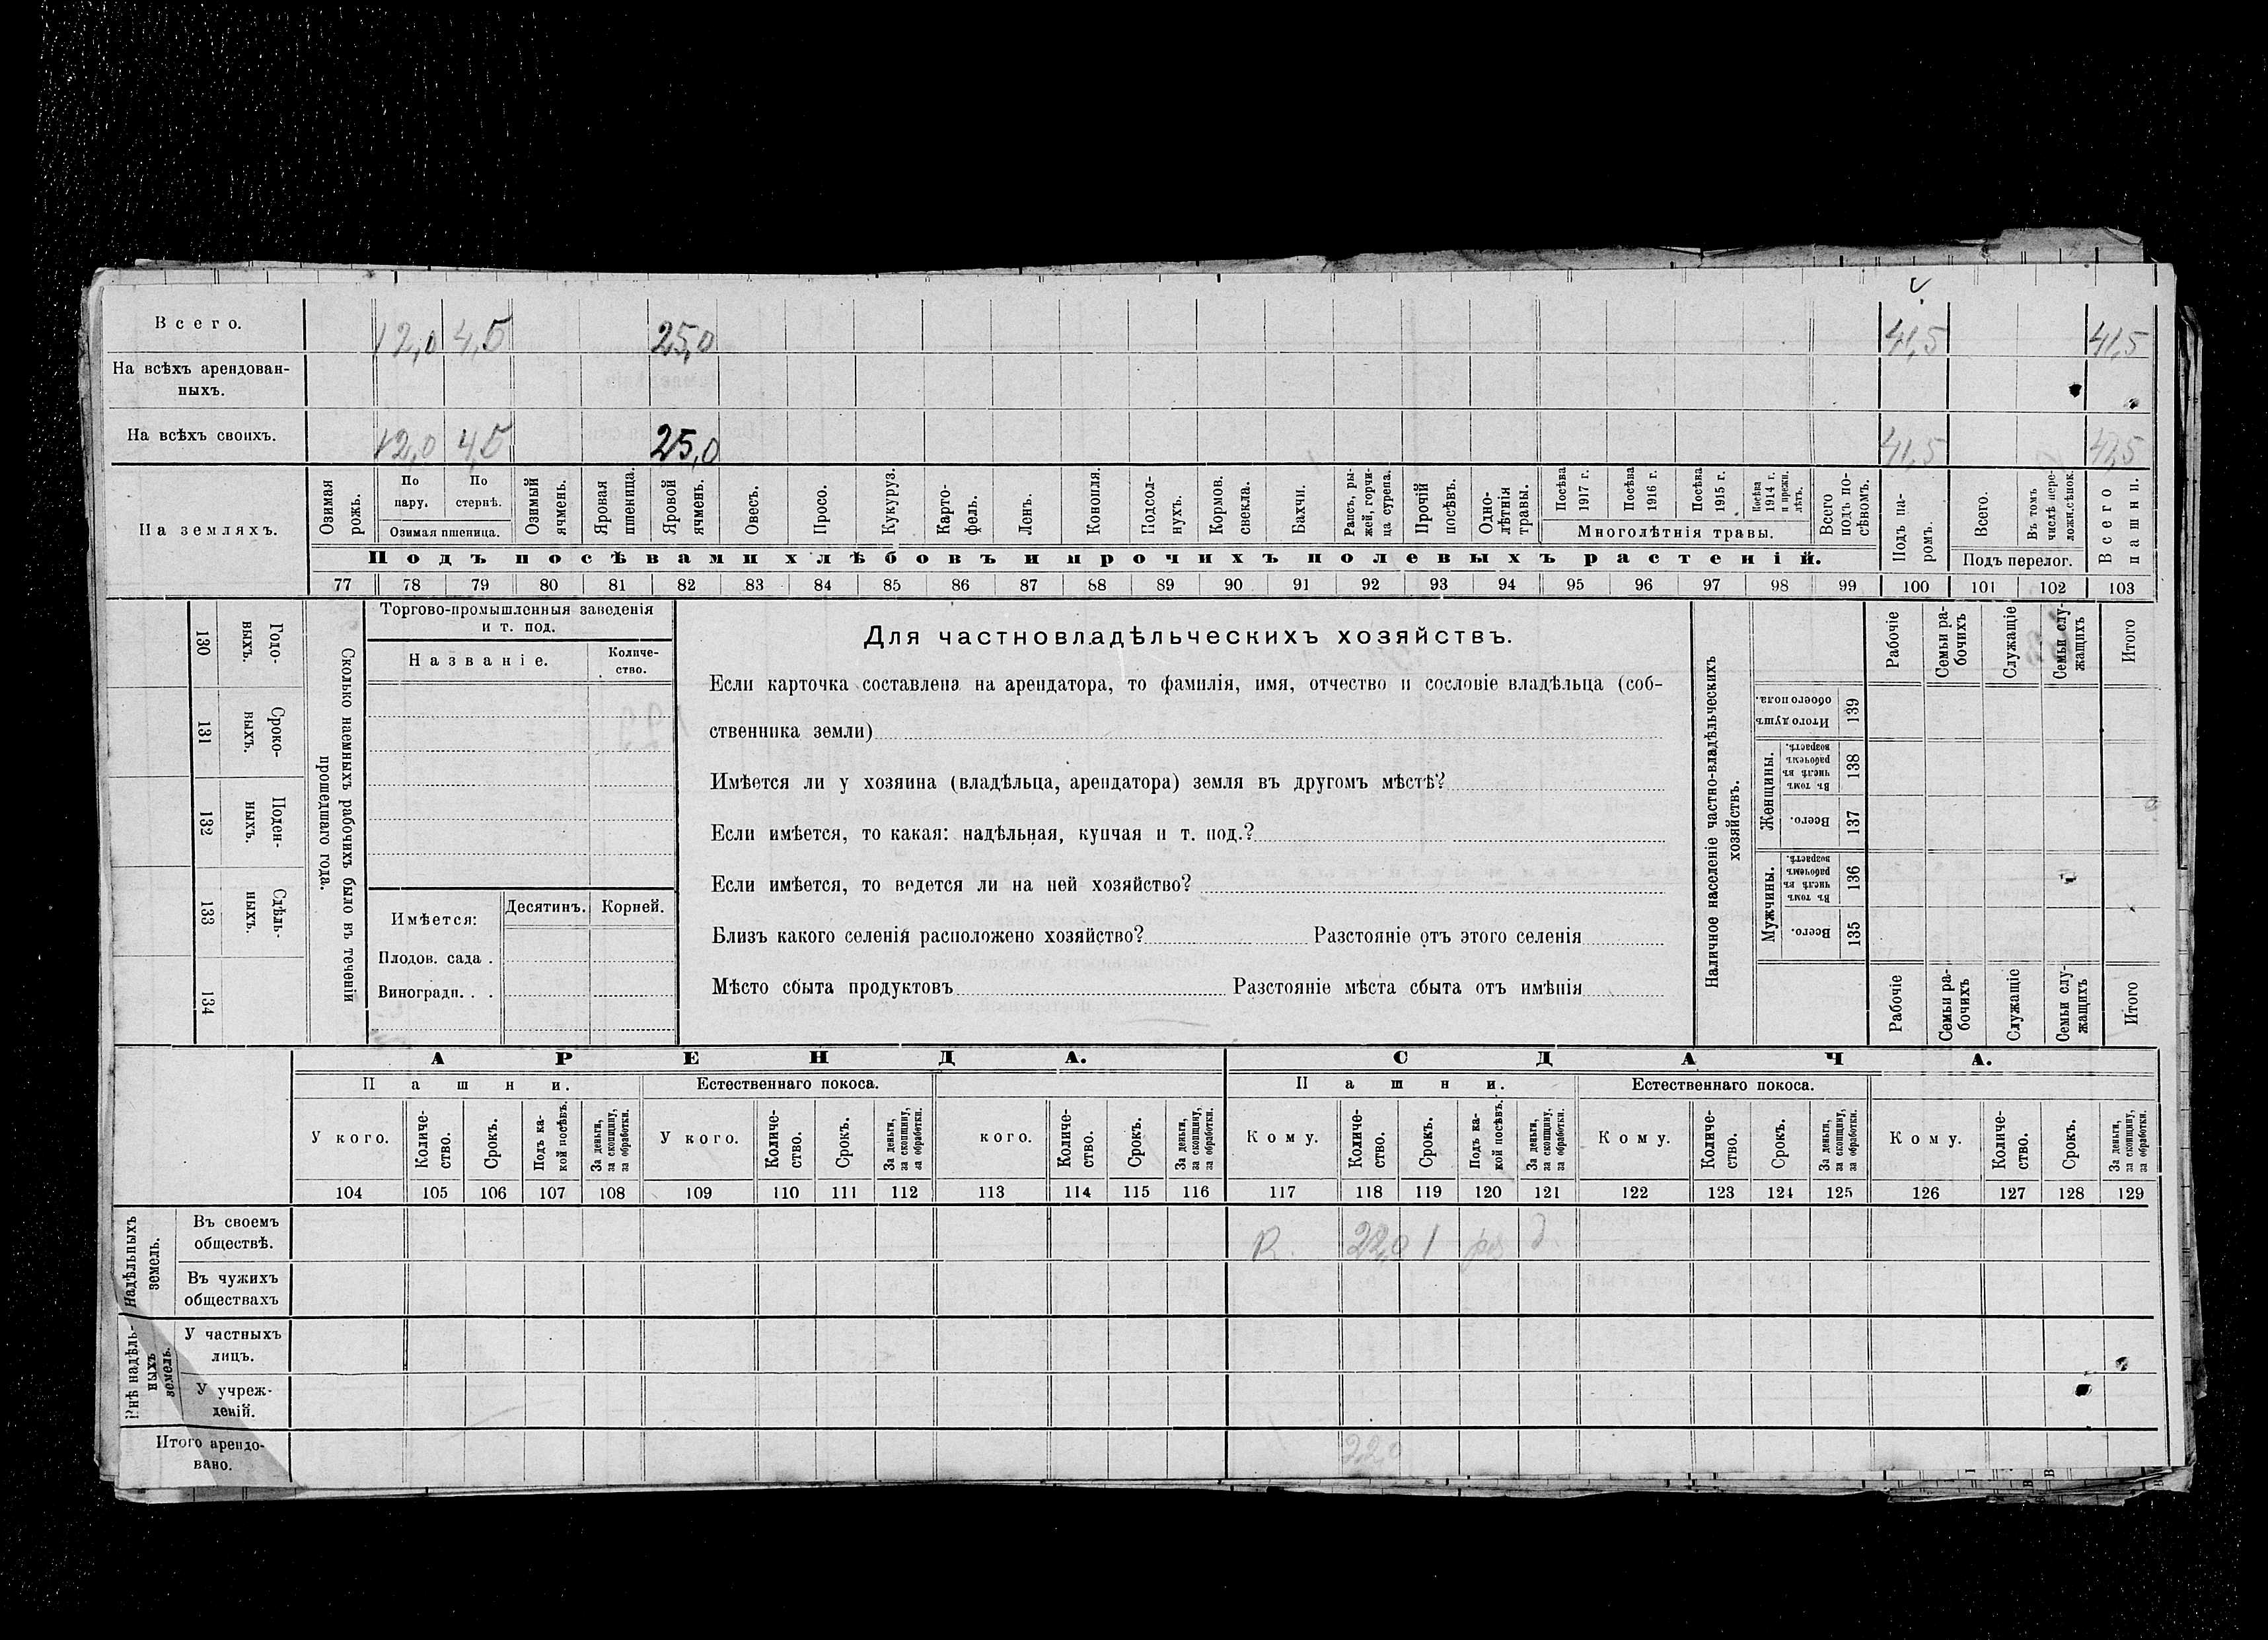 Всего. 12,0 4,5 25,0 41,5 41,5
На всѣхъ арендован-
ныхъ.
На всѣхъ своихъ. 12,0 4,5 25,0 41,5 41,5
На земляхъ.
Озимая рожь.
По пару.
По стернѣ.
Озимая пшеница.
Озимый ячмень.
Яровая пшеница.
Яровой ячмень.
Овесъ.
Просо.
Кукуруз.
Карто-
фель.
Ленъ.
Конопля.
Подсол-
нухъ.
Кормов. свекла.
Бахчи.
Рапсъ, ры-
жей, горчи-
ца сурепа.
Прочій посѣвъ.
Одно-
лѣтнія травы.
Посѣва 1917 г.
Посѣва 1916 г.
Посѣва 1915 г.
Посѣва 1914 г. и прежн. лѣтъ.
Многолѣтнія травы.
Всего подъ по-
сѣвомъ.
Подъ посѣвами хлѣбовъ и прочихъ полевыхъ растеній.
Подъ па-
ромъ.
Всего.
Въ томъ числѣ пере-
ложн.сѣнок.
Подъ перелог.
Всего пашни.
77 78 79 80 81 82 83 84 85 86 87 88 89 90 91 92 93 94 95 96 97 98 99 100 101 102 103
130 Годо-
выхъ.
131 Сроко-
выхъ.
132 Поден-
ныхъ.
133 Сдѣль-
ныхъ.
134
Сколько наемныхъ рабочихъ было въ теченіи
прошедшаго года.
Торгово-промышленныя заведенія
и т. под.
Названіе.
Количе-
ство.
Имѣется:
Десятинъ.
Корней.
Плодов. сада .
Виноградн. . .
Для частновладѣльческихъ хозяйствъ.
Если карточка составлена на арендатора, то фамилія, имя, отчество и сословіе владѣльца (соб-
ственника земли)
Имѣется ли у хозяина (владѣльца, арендатора) земля въ другомъ мѣстѣ?
Если имѣется, то какая: надѣльная, купчая и т. под.?
Если имѣется, то ведется ли на ней хозяйство?
Близъ какого селенія расположено хозяйство? Разстояніе отъ этого селенія
Мѣсто сбыта продуктовъ Разстояніе мѣста сбыта отъ имѣнія
Наличное населеніе частно-владѣльческихъ
хозяйствъ.
Рабочіе
Семьи ра-
бочихъ
Служащіе
Семьи слу-
жащихъ
Итого
Итого душъ обоего пола. 139
Женщины.
Въ томъ числѣ въ рабочемъ возрастѣ. 138
Всего. 137
Мужчины.
Въ томъ числѣ въ рабочемъ возрастѣ. 136
Всего. 135
Рабочіе
Семьи ра-
бочихъ
Служащіе
Семьи слу-
жащихъ
Итого
АРЕНДА.
СДАЧА.
Пашни.
Естественнаго покоса.
Пашни.
Естественнаго покоса.
У кого.
Количе-
ство.
Срокъ.
Подъ ка-
кой посѣвъ.
За деньги,
за скопщину,
за обработки.
У кого.
Количе-
ство.
Срокъ.
За деньги,
за скопщину,
за обработки.
кого.
Количе-
ство.
Срокъ.
За деньги,
за скопщину,
за обработки.
Кому.
Количе-
ство.
Срокъ.
Подъ ка-
кой посѣвъ.
За деньги,
за скопщину,
за обработки.
Кому.
Количе-
ство.
Срокъ.
За деньги,
за скопщину,
за обработки.
Кому.
Количе-
ство.
Срокъ.
За деньги,
за скопщину,
за обработки.
104 105 106 107 108 109 110 111 112 113 114 115 116 117 118 119 120 121 122 123 124 125 126 127 128 129
Надѣльныхъ
земель.
Въ своемъ
обществѣ.
22,0 1
Въ чужихъ
обществахъ
Внѣ надѣль-
ныхъ
земель.
У частныхъ
лицъ.
У учреж-
деній.
Итого арендо-
вано.
22,0